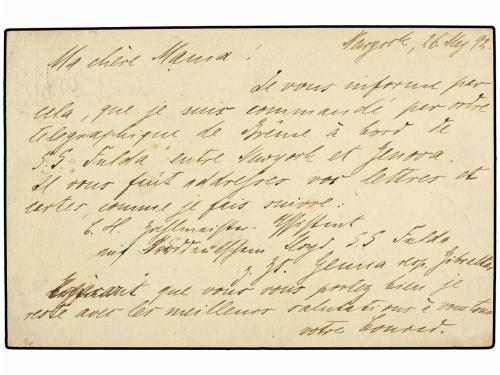 Newyork, 26. May 92.
Ma chère Mama!
Je vous informe par
cela, que je suis commandé par ordre
telegraphique de Brême à bord de
S.S. Fulda entre Newyork et Genova.
Il vous faut addresses vos lettres et
cartes comme je fais suivre:
C. H. Zahlmeister Assistent
auf Norddeutschem Lloyd, S.S. Fulda
z. Zt. Genua resp. Gibraltar
Espérant que vous vous portez bien je
reste avec les meilleurs salutations à vous tous
votre Conrad.